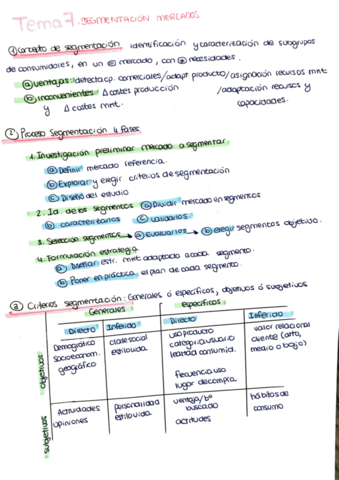 Tema 7. SEGMENTACIÓN MERCADOS
① Concepto de segmentación identificación y caracterización de subgrupos
de consumidores, en un mercado, con necesidades.
ⓐ ventajas: detecta op. comerciales/adapt producto/asignación recursos mnt
ⓑ inconvenientes: Δ costes producción /adaptación recursos y
y Δ costes mnt. capacidades.
② Proceso Segmentación 4 Fases
1. Investigación preliminar mercado a segmentar
ⓐ Definir mercado referencia.
ⓑ Explorar y elegir criterios de segmentación
ⓒ Diseño del estudio
2. Id. de los segmentos ⓐ Dividir mercado en segmentos
ⓑ caracterizarlos ⓒ validarlos.
3. Selección segmentos → ⓐ Evaluarlos → ⓑ elegir segmentos objetivo.
4. Formulación estrategia
ⓐ Diseñar estr. mnt adaptada a cada segmento.
ⓑ Poner en práctica el plan de cada segmento.
③ Criterios segmentación: Generales ó específicos, objetivos ó subjetivos
Generales Específicos
Directo Inferido Directo Inferido
objetivos
Demográfico
socioeconom.
geográfico
clase social
estilo vida
uso producto
categ. usuario
lealtad consumid.
frecuencia uso
lugar de compra.
valor relacional
cliente (alto,
medio o bajo)
subjetivos
Actividades
opiniones
personalidad
estilo vida
ventaja/bº
buscado
actitudes
hábitos de
consumo